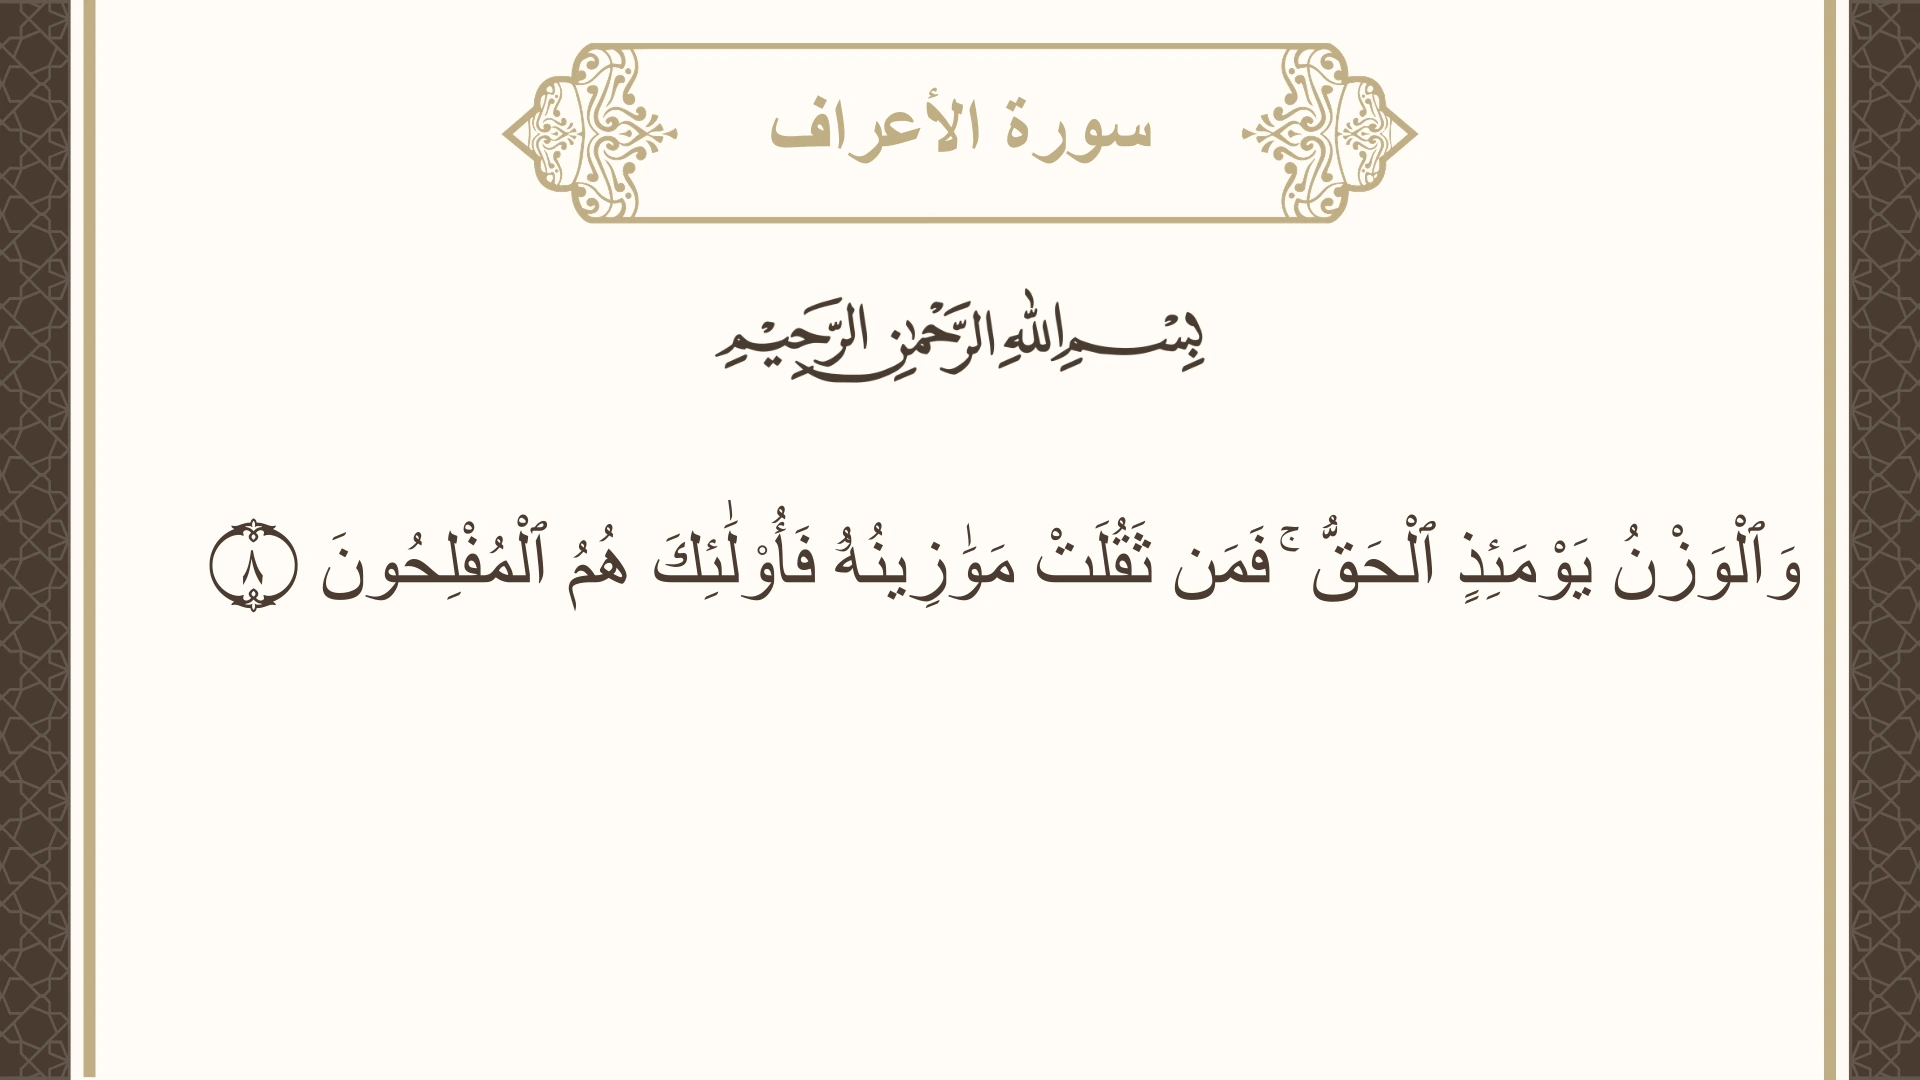 سورة الأعراف
بِسْمِ اللهِ الرَّحْمٰنِ الرَّحِيْمِ
وَٱلْوَزْنُ يَوْمَئِذٍ ٱلْحَقُّ ۚ فَمَن ثَقُلَتْ مَوَٰزِينُهُۥ فَأُو۟لَٰٓئِكَ هُمُ ٱلْمُفْلِحُونَ ٨